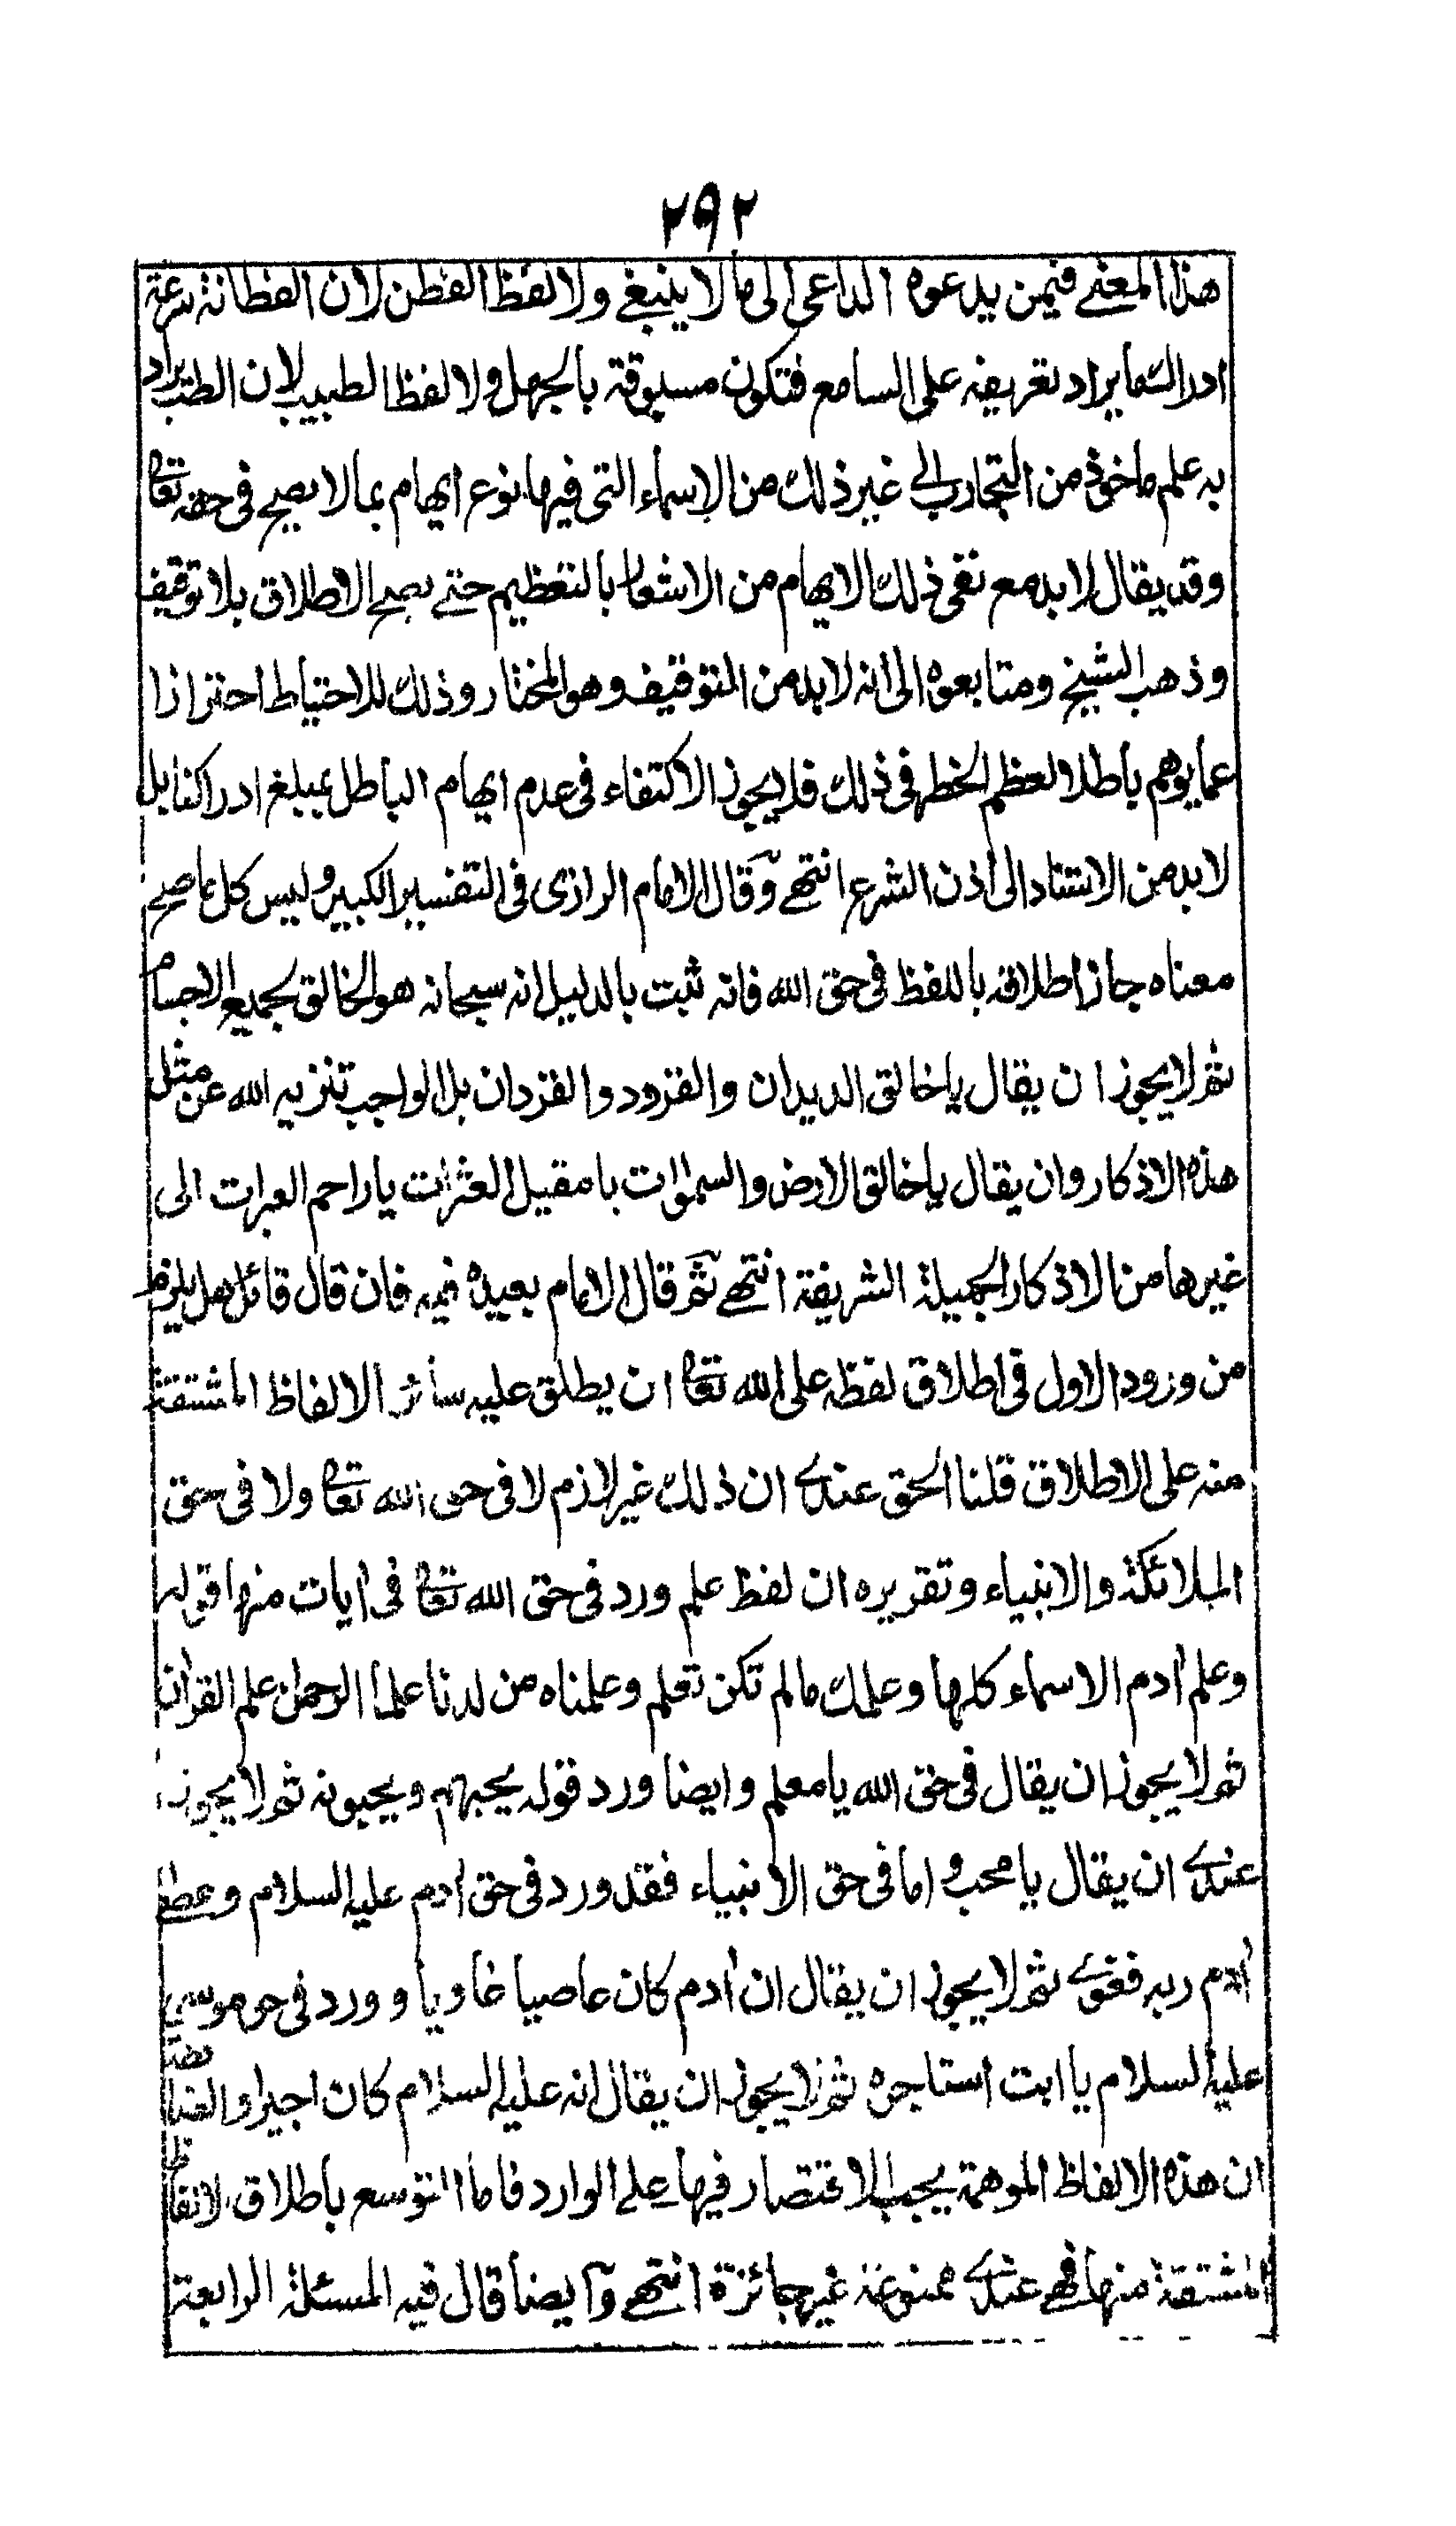 ٢٩٢
هذا المعنى فيمن يدعوه الداعي الى ما لا ينبغي ولا لفظ الفطن لان الفطانة سرعة
ادراك ما يراد تعريفه على السامع فتكون مسبوقة بالجهل ولا لفظ الطبيب لان الطب يراد
به علم ماخوذ من التجارب الى غير ذلك من الاسماء التى فيها نوع ايهام بما لا يصح فى حقه تعالى
وقد يقال لا بد مع نفى ذلك الايهام من الاشعار بالتعظيم حتى يصح الاطلاق بلا توقيف
وذهب الشيخ ومتابعوه الى انه لا بد من التوقيف وهو المختار وذلك للاحتياط احترازا
عما يوهم باطلا لعظم الخطر فى ذلك فلا يجوز الاكتفاء فى عدم ايهام الباطل بمبلغ ادراكنا بل
لا بد من الاستناد الى اذن الشرع انتهى وقال الامام الرازى فى التفسير الكبير وليس كل ما صح
معناه جاز اطلاقه باللفظ فى حق الله فانه ثبت بالدليل انه سبحانه هو الخالق لجميع الاجسام
ثم لا يجوز ان يقال يا خالق الديدان والقرود والقردان بل الواجب تنزيه الله عن مثل
هذه الاذكار وان يقال يا خالق الارض والسموات يا مقيل العثرات يا راحم العبرات الى
غيرها من الاذكار الجميلة الشريفة انتهى ثم قال الامام بعيده فيه فان قال قائل هل يلزم
من ورود الاول فى اطلاق لفظه على الله تعالى ان يطلق عليه سائر الالفاظ المشتقة
منه على الاطلاق قلنا الحق عندى ان ذلك غير لازم لا فى حق الله تعالى ولا فى حق
الملائكة والانبياء وتقريره ان لفظ علم ورد فى حق الله تعالى فى ايات منها قوله
وعلم ادم الاسماء كلها وعلمك مالم تكن تعلم وعلمناه من لدنا علما الرحمن علم القران
ثم لا يجوز ان يقال فى حق الله يا معلم وايضا ورد قوله يحبهم ويحبونه ثم لا يجوز
عندى ان يقال يا محب واما فى حق الانبياء فقد ورد فى حق ادم عليه السلام وعصى
ادم ربه فغوى ثم لا يجوز ان يقال ان ادم كان عاصيا غاويا وورد فى حق موسى
عليه السلام يا ابت استاجره ثم لا يجوز ان يقال انه عليه السلام كان اجيرا والضابطة
ان هذه الالفاظ الموهمة يجب الاقتصار فيها على الوارد فاما التوسع باطلاق الالفاظ
المشتقة منها فهى عندى ممنوعة غير جائزة انتهى وايضا قال فيه المسئلة الرابعة